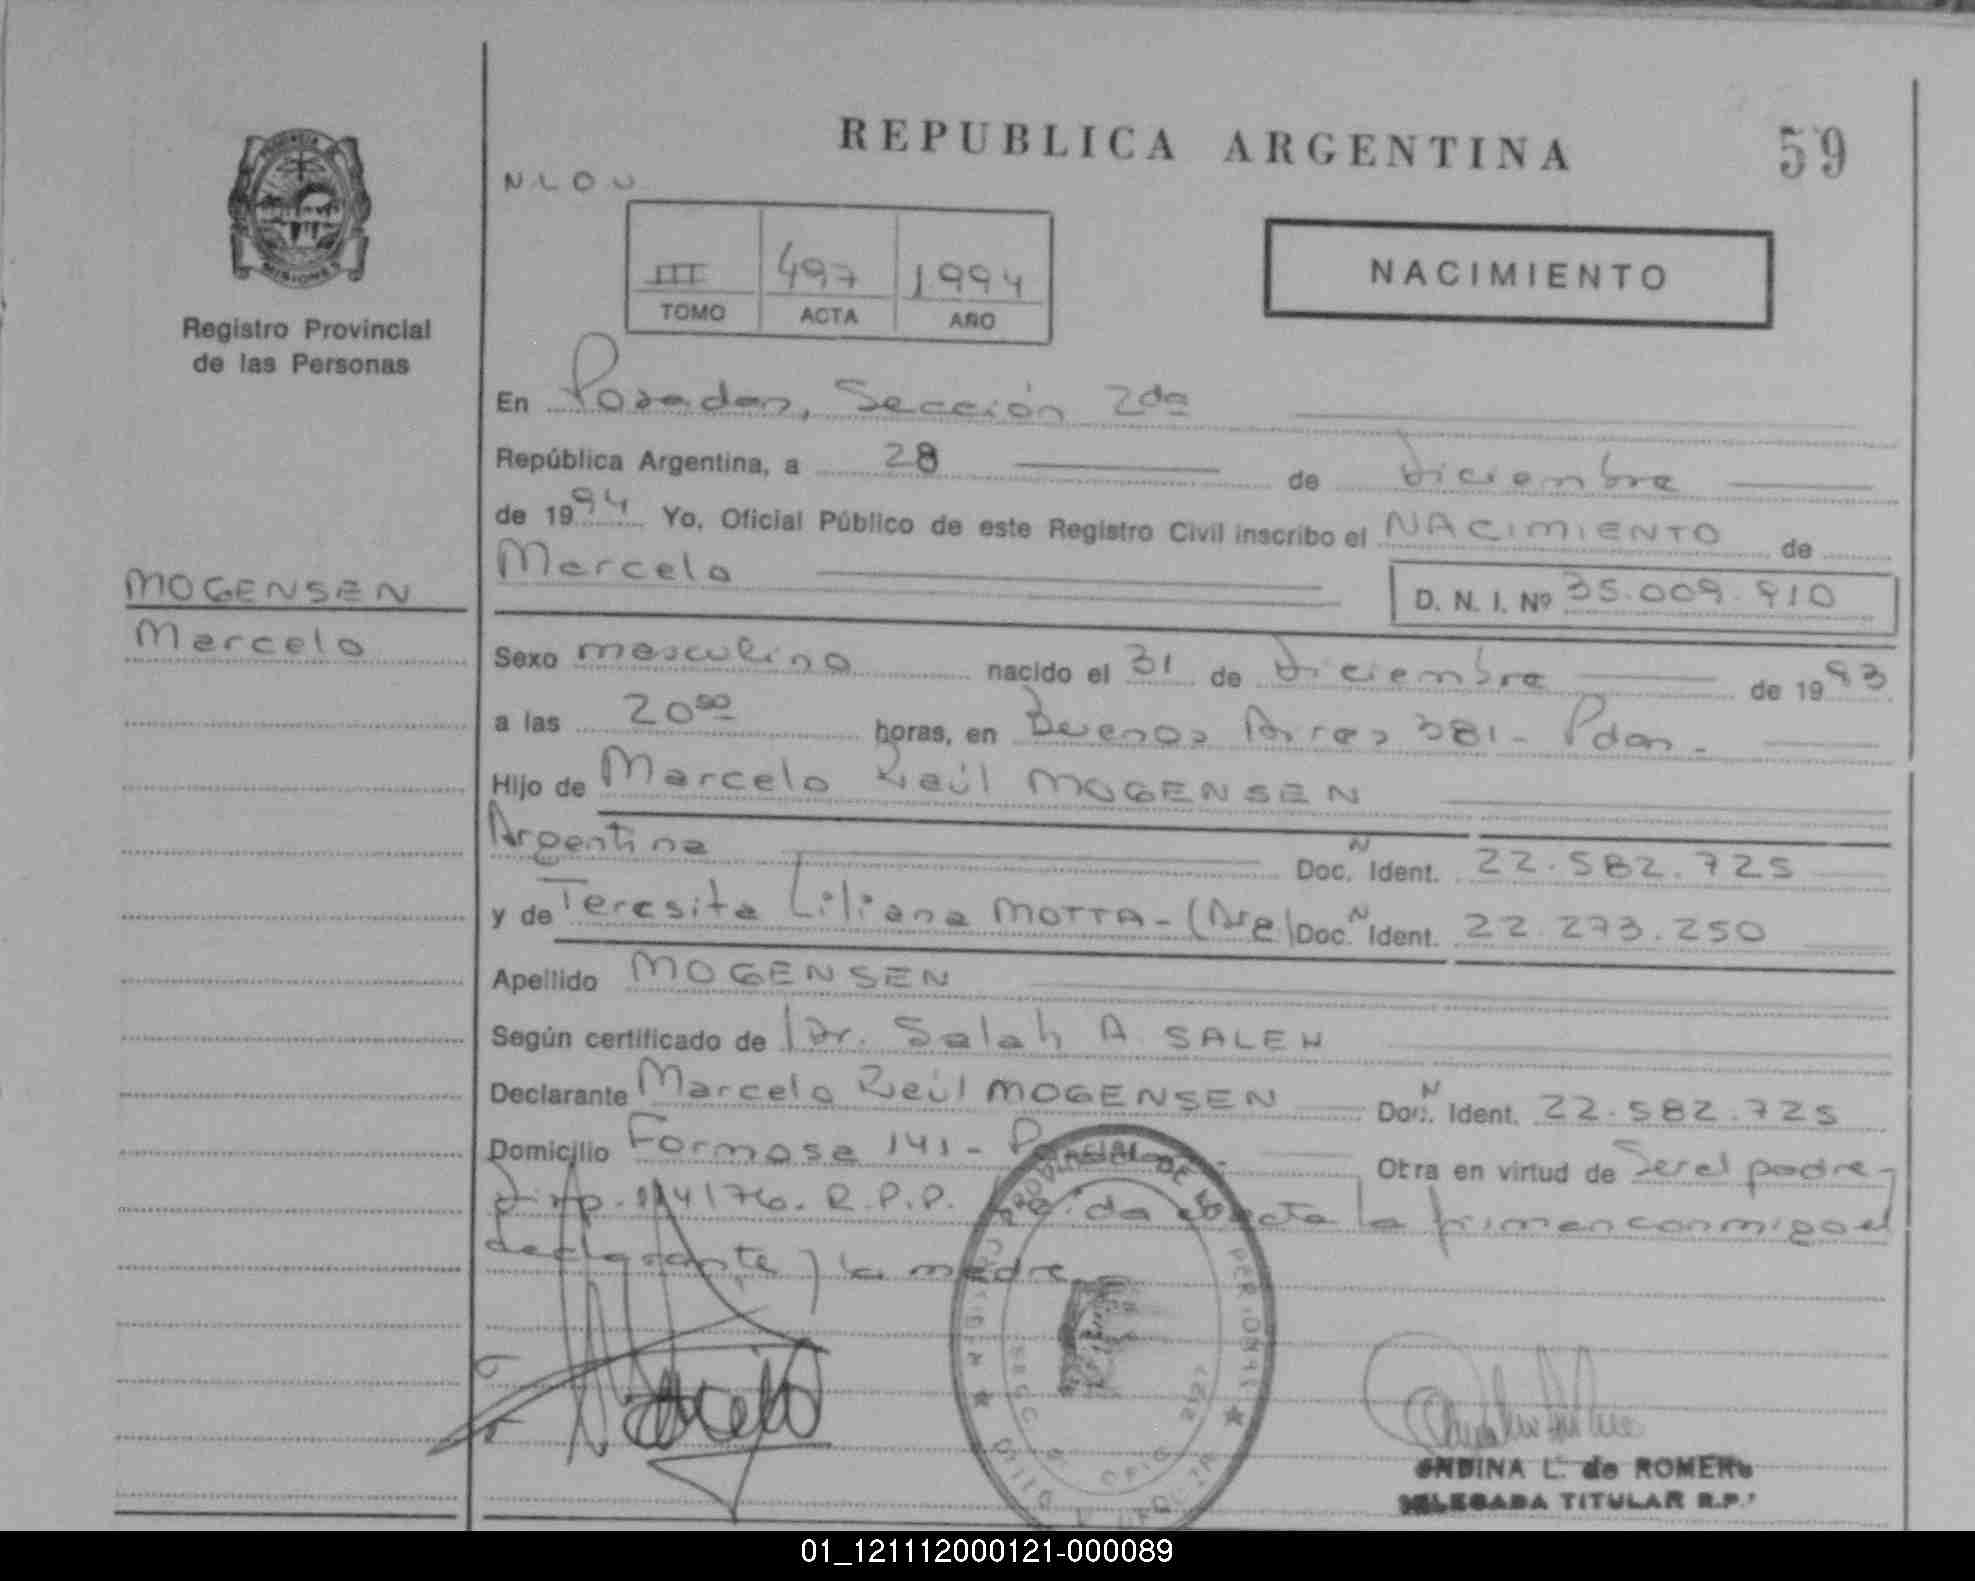 REPUBLICA ARGENTINA
59
PROVINCIA
MISIONES
Registro Provincial
de las Personas
N L O U
III 497 1994
TOMO ACTA AÑO
NACIMIENTO
En Posadas, Sección 2da
República Argentina, a 28 de Diciembre
de 1994 Yo, Oficial Público de este Registro Civil inscribo el NACIMIENTO de
Marcelo
D. N. I. Nº 35.009.910
MOGENSEN
Marcelo
Sexo masculino nacido el 31 de Diciembre de 1993
a las 20 horas, en Buenos Aires 381 - Pdas.
Hijo de Marcelo Raúl MOGENSEN
Argentina Doc. N Ident. 22.582.725
y de Teresita Liliana MOTTA - (Arg) Doc. N Ident. 22.273.250
Apellido MOGENSEN
Según certificado de Dr. Salah A. SALEH
Declarante Marcelo Raúl MOGENSEN Doc. N Ident. 22.582.725
Domicilio Formosa 141 - Otra en virtud de Ser el padre-
Disp. 114/76. R.P.P. Leída el acta la firman conmigo el
declarante y la madre
ONDINA L. de ROMERO
DELEGADA TITULAR R.P.
01_121112000121-000089